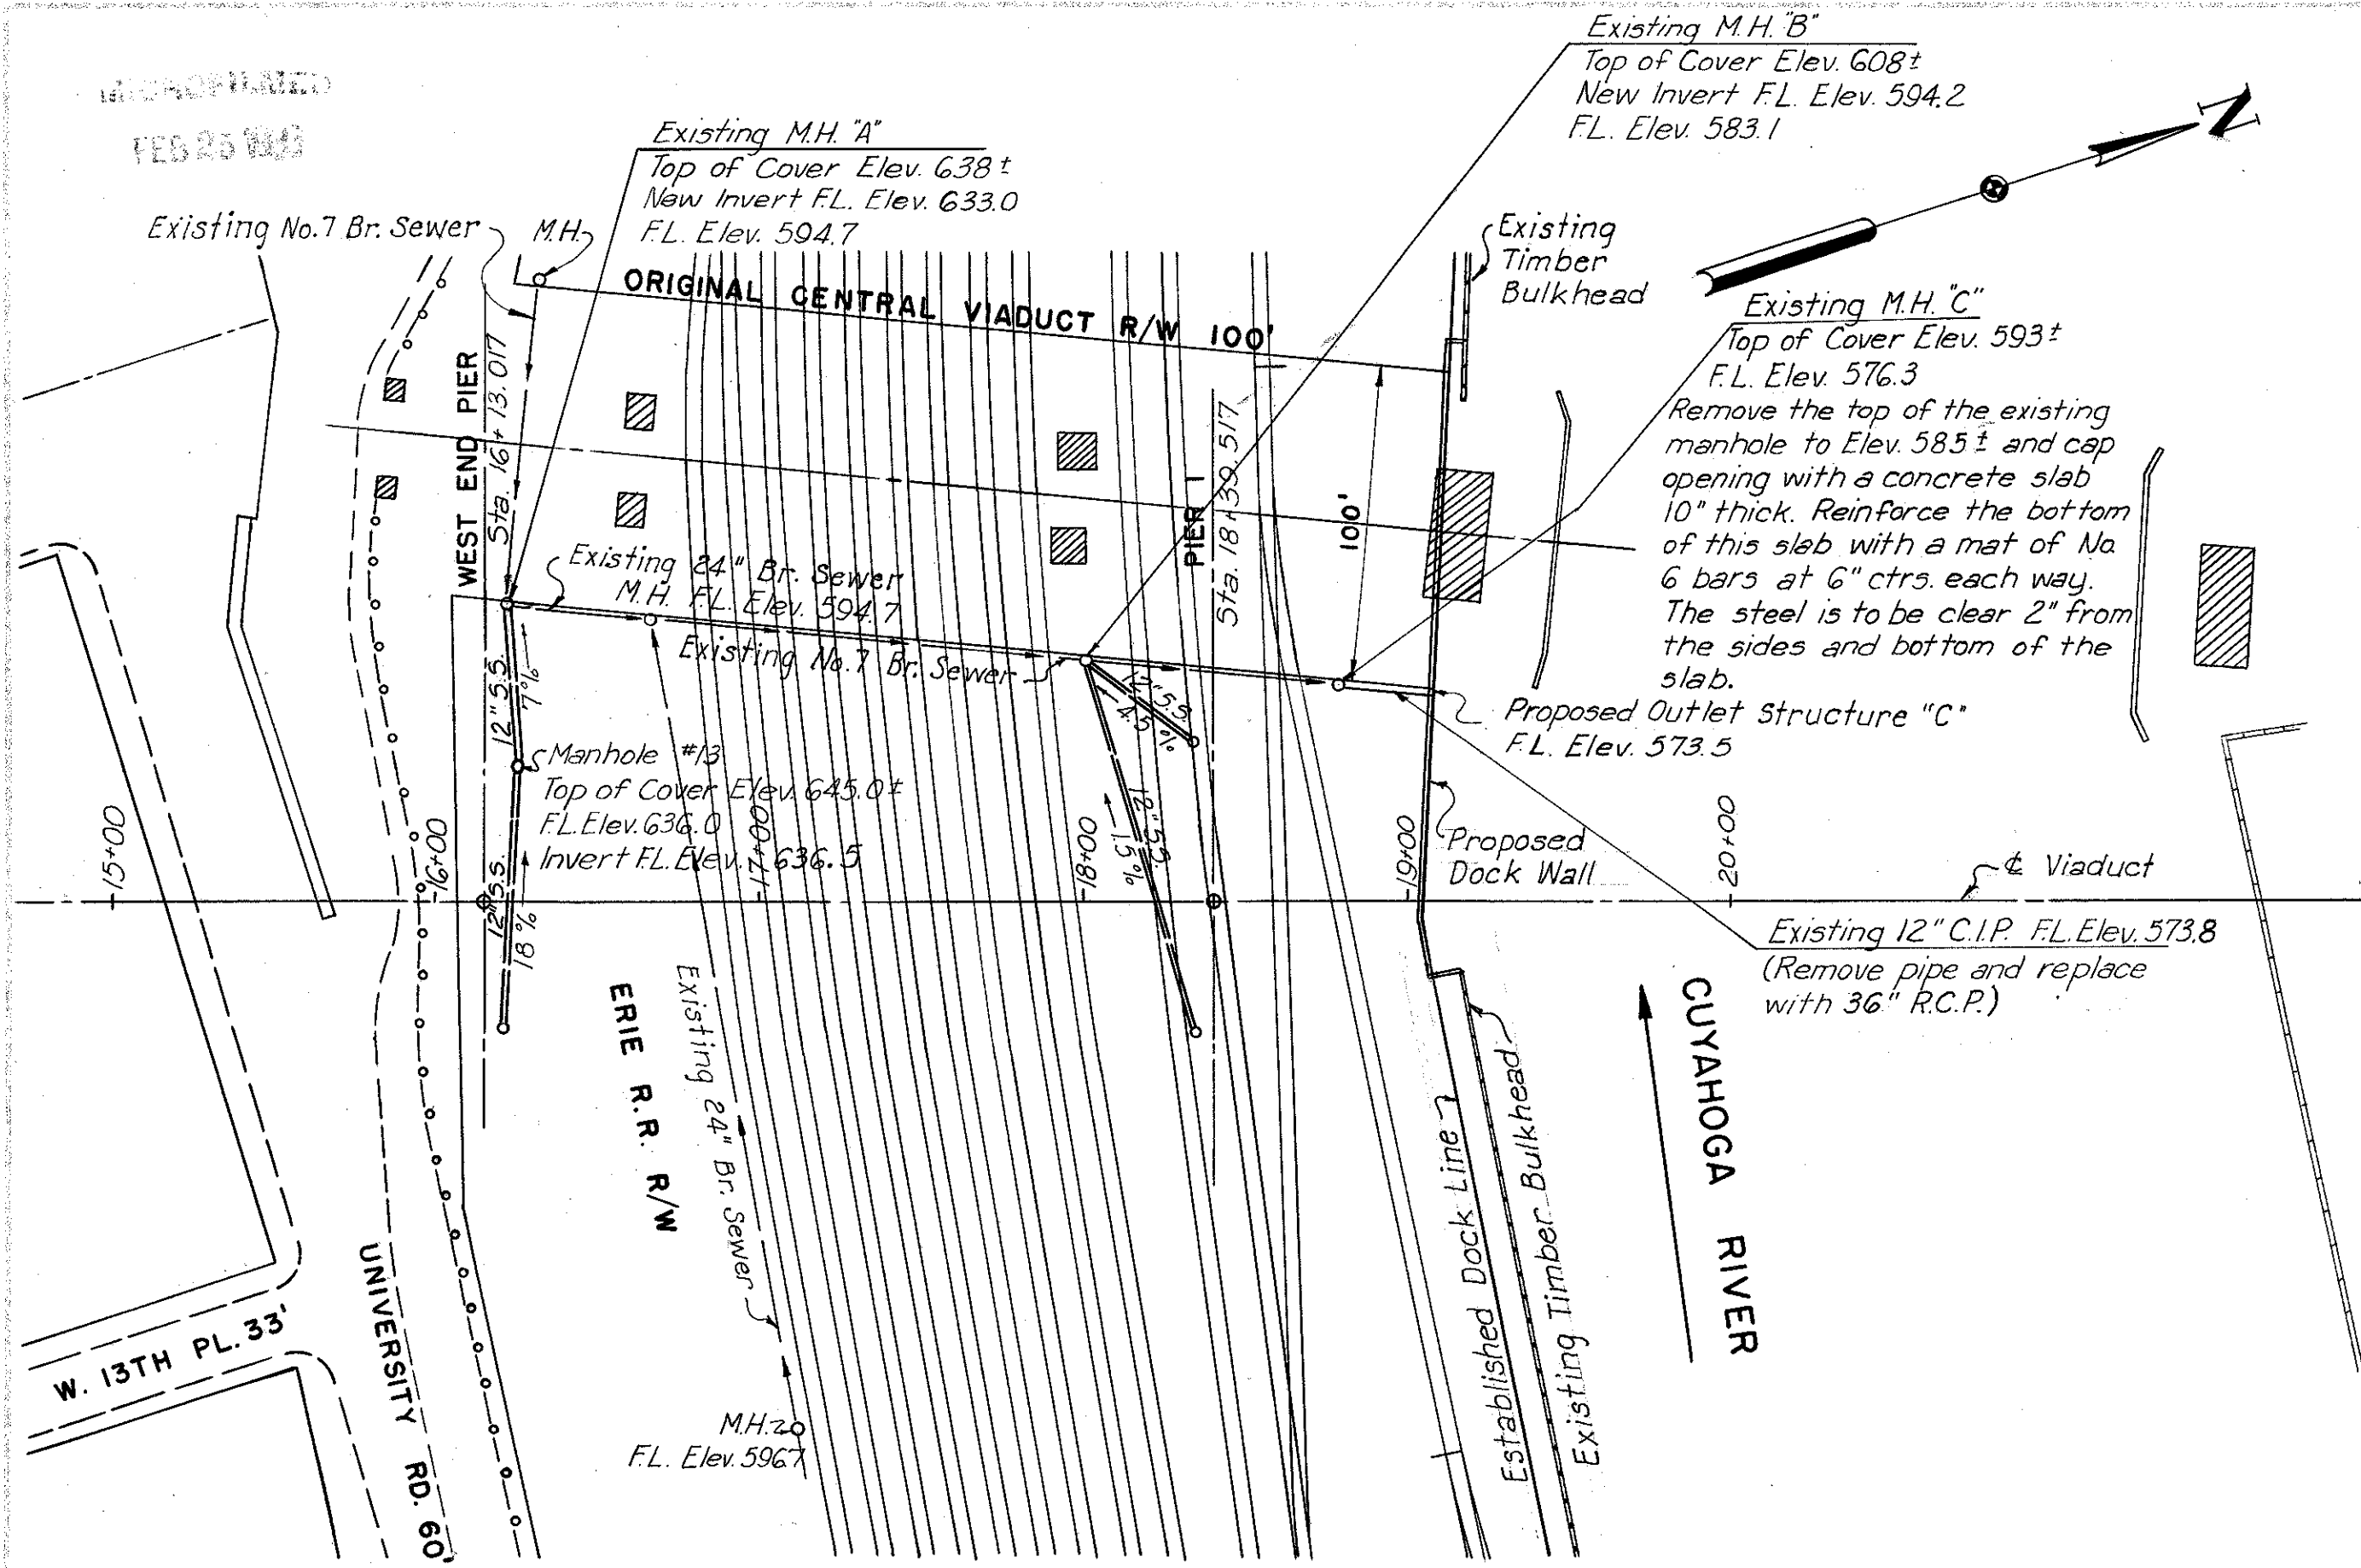 Existing M.H. "B"
Top of Cover Elev. 608±
New Invert F.L. Elev. 594.2
F.L. Elev. 583.1
MICROFILMED
FEB 25
Existing M.H. "A"
Top of Cover Elev. 638±
New Invert F.L. Elev. 633.0
F.L. Elev. 594.7
Existing No.7 Br. Sewer
M.H.
N
Existing
Timber
Bulkhead
ORIGINAL CENTRAL VIADUCT R/W 100'
Existing M.H. "C"
Top of Cover Elev. 593±
F.L. Elev. 576.3
Remove the top of the existing
manhole to Elev. 585± and cap
opening with a concrete slab
10" thick. Reinforce the bottom
of this slab with a mat of No.
6 bars at 6" ctrs. each way.
The steel is to be clear 2" from
the sides and bottom of the
slab.
WEST END PIER
Sta. 16+13.017
PIER 1
Sta. 18+39.517
100'
Existing 24" Br. Sewer
M.H. F.L. Elev. 594.7
Existing No.7 Br. Sewer
12" S.S.
7%
12" S.S.
4.5%
Proposed Outlet Structure "C"
F.L. Elev. 573.5
Manhole #13
Top of Cover Elev. 645.0±
F.L. Elev. 636.0
Invert F.L. Elev. 636.5
12" S.S.
18%
12" S.S.
1.5%
15+00
16+00
17+00
18+00
19+00
20+00
Proposed
Dock Wall
℄ Viaduct
Existing 12" C.I.P. F.L. Elev. 573.8
(Remove pipe and replace
with 36" R.C.P.)
ERIE R.R. R/W
Existing 24" Br. Sewer
CUYAHOGA RIVER
Established Dock Line
Existing Timber Bulkhead
UNIVERSITY RD. 60'
W. 13TH PL. 33'
M.H.
F.L. Elev. 596.7